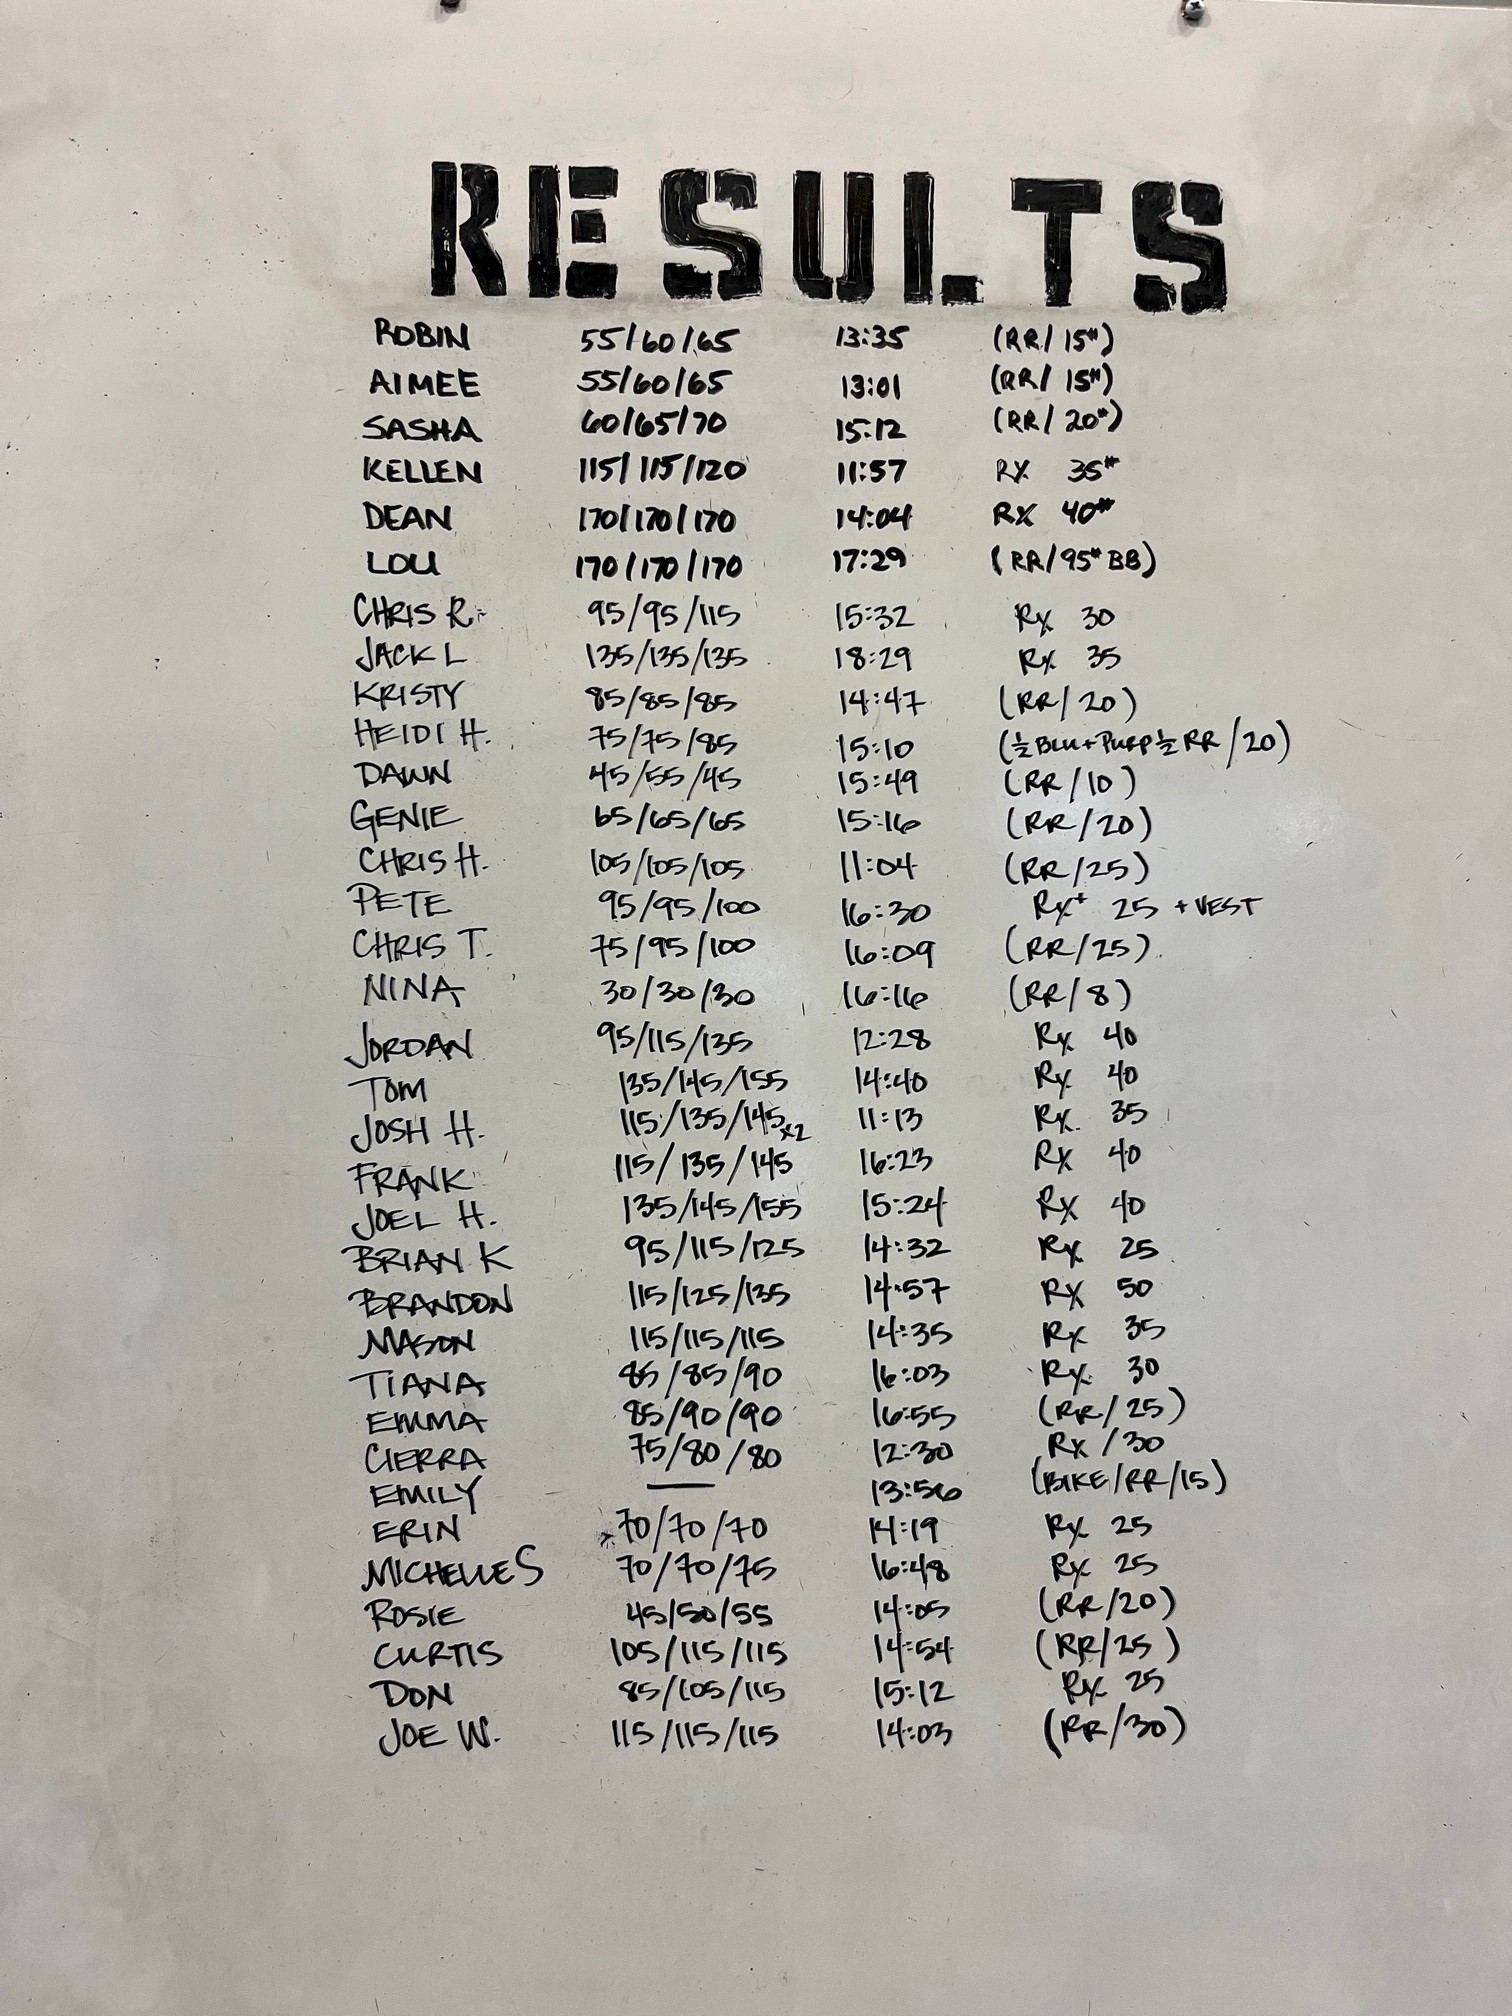 RESULTS
ROBIN 55/60/65 13:35 (RR/ 15#)
AIMEE 55/60/65 13:01 (RR/ 15#)
SASHA 60/65/70 15:12 (RR/ 20#)
KELLEN 115/115/120 11:57 RX 35#
DEAN 170/170/170 14:04 RX 40#
LOU 170/170/170 17:29 (RR/95# BB)
CHRIS R. 95/95/115 15:32 Rx 30
JACK L 135/135/135 18:29 Rx 35
KRISTY 85/85/85 14:47 (RR/20)
HEIDI H. 75/75/85 15:10 (½ BLU+PURP ½ RR/20)
DAWN 45/55/45 15:49 (RR/10)
GENIE 65/65/65 15:16 (RR/20)
CHRIS H. 105/105/105 11:04 (RR/25)
PETE 95/95/100 16:30 Rx+ 25 +VEST
CHRIS T. 75/95/100 16:09 (RR/25)
NINA 30/30/30 16:16 (RR/8)
JORDAN 95/115/135 12:28 Rx 40
TOM 135/145/155 14:40 Rx 40
JOSH H. 115/135/145 x2 11:13 Rx 35
FRANK 115/135/145 16:23 Rx 40
JOEL H. 135/145/155 15:24 Rx 40
BRIAN K 95/115/125 14:32 Rx 25
BRANDON 115/125/135 14:57 Rx 50
MASON 115/115/115 14:35 Rx 35
TIANA 85/85/90 16:03 Rx 30
EMMA 85/90/90 16:55 (RR/25)
CIERRA 75/80/80 12:30 Rx /30
EMILY — 13:56 (BIKE/RR/15)
ERIN 70/70/70 14:19 Rx 25
MICHELLE S 70/70/75 16:48 Rx 25
ROSIE 45/50/55 14:05 (RR/20)
CURTIS 105/115/115 14:54 (RR/25)
DON 85/105/115 15:12 Rx 25
JOE W. 115/115/115 14:03 (RR/30)